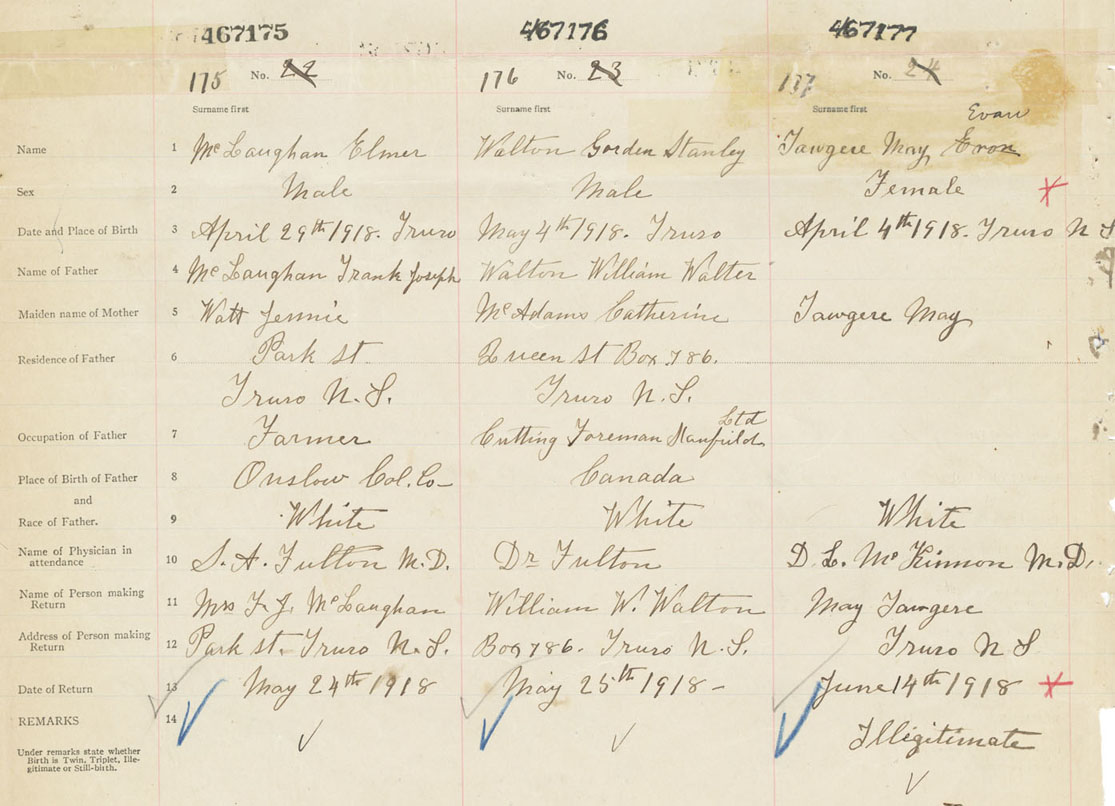 467175 467176 467177
175 No. 22 176 No. 23 177 No. 24
Surname first Surname first Surname first
Evan
Name 1 McLaughan Elmer Walton Gorden Stanley Tawgere May Evon
Sex 2 Male Male Female
Date and Place of Birth 3 April 29th 1918. Truro May 4th 1918. Truro April 4th 1918. Truro N S
Name of Father 4 McLaughan Frank Joseph Walton William Walter
Maiden name of Mother 5 Watt Jennie McAdams Catherine Tawgere May
Residence of Father 6 Park St. Queen St Box 786.
Truro N.S. Truro N.S.
Ltd
Occupation of Father 7 Farmer Cutting Foreman
Place of Birth of Father 8 Onslow Col. Co Canada
and
Race of Father. 9 White White White
Name of Physician in attendance 10 S. A. Fulton M.D. Dr Fulton D. L. McKinnon M.D.
Name of Person making Return 11 Mrs F. J. McLaughan William W. Walton May Tawgere
Address of Person making Return 12 Park st. Truro N.S. Box 786. Truro N.S. Truro N S
Date of Return 13 May 24th 1918 May 25th 1918 - June 14th 1918
REMARKS 14 Illegitimate
Under remarks state whether
Birth is Twin, Triplet, Ille-
gitimate or Still-birth.